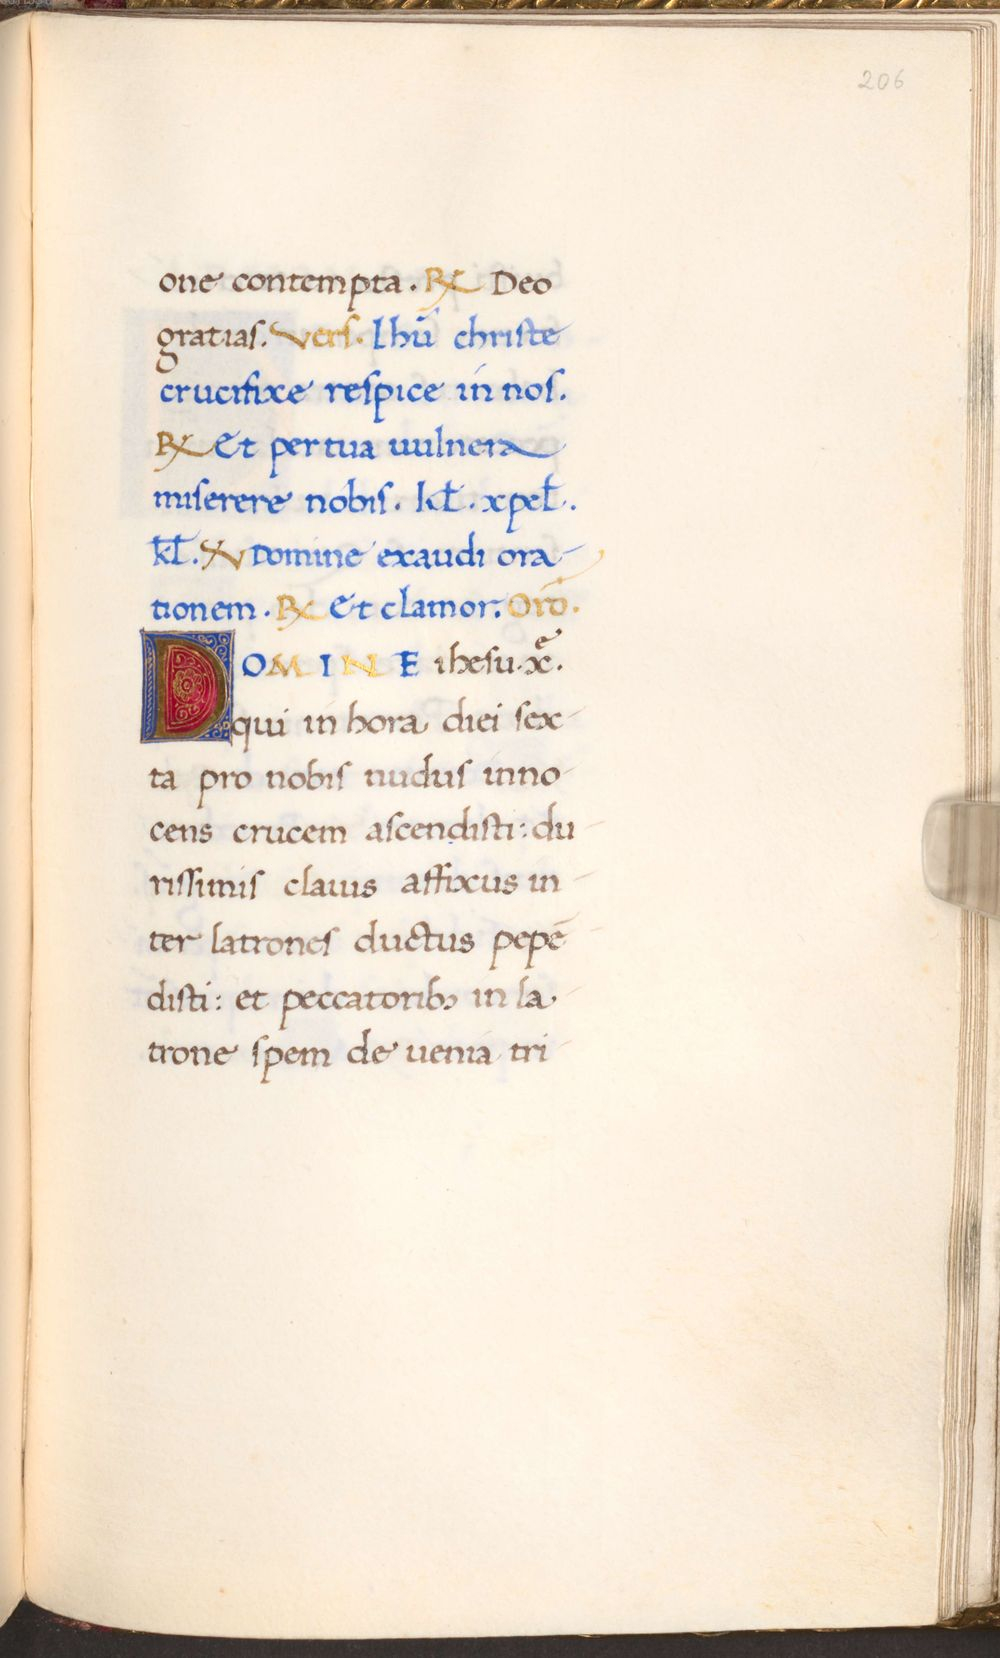 206
one contempta. ℟ Deo
gratias. Vers. Ihū christe
crucifixe respice in nos.
℟ Et per tua uulnera
miserere nobis. kł. xpeł.
kł. ℣ Domine exaudi ora-
tionem. ℟ Et clamor. Orō.
DOMINE ihesu. xē.
qui in hora diei sex-
ta pro nobis nudus inno-
cens crucem ascendisti: du-
rissimis clauis affixus in-
ter latrones ductus pepē-
disti: et peccatorib; in la-
trone spem de uenia tri-